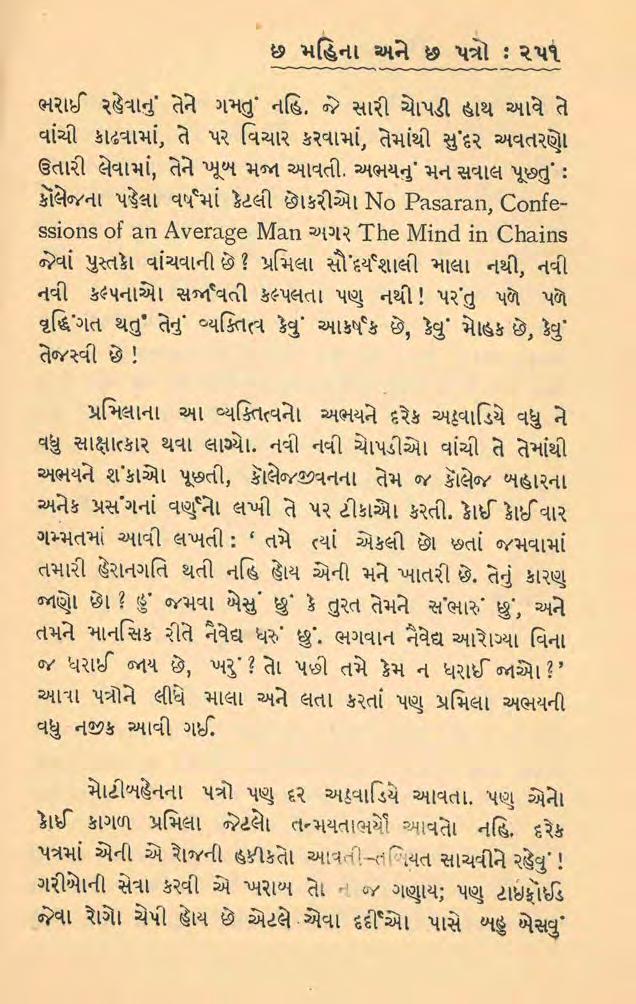 છ મહિના અને છ પત્રો : ૨૫૧
ભરાઈ રહેવાનું તેને ગમતું નહિ. જે સારી ચોપડી હાથ આવે તે
વાંચી કાઢવામાં, તે પર વિચાર કરવામાં, તેમાંથી સુંદર અવતરણો
ઉતારી લેવામાં, તેને ખૂબ મજા આવતી. અભયનું મન સવાલ પૂછતું :
કૉલેજના પહેલા વર્ષમાં કેટલી છોકરીઓ No Pasaran, Confe-
ssions of an Average Man અગર The Mind in Chains
જેવાં પુસ્તકો વાંચવાની છે ? પ્રમિલા સૌંદર્યશાલી માલા નથી, નવી
નવી કલ્પનાઓ સર્જાવતી કલ્પલતા પણ નથી ! પરંતુ પળે પળે
વૃદ્ધિંગત થતું તેનું વ્યક્તિત્વ કેવું આકર્ષક છે, કેવું મોહક છે, કેવું
તેજસ્વી છે !
પ્રમિલાના આ વ્યક્તિત્વનો અભયને દરેક અઠવાડિયે વધુ ને
વધુ સાક્ષાત્કાર થવા લાગ્યો. નવી નવી ચોપડીઓ વાંચી તે તેમાંથી
અભયને શંકાઓ પૂછતી, કૉલેજજીવનના તેમ જ કૉલેજ બહારના
અનેક પ્રસંગનાં વર્ણનો લખી તે પર ટીકાઓ કરતી. કોઈ કોઈ વાર
ગમ્મતમાં આવી લખતી : ‘ તમે ત્યાં એકલી છો છતાં જમવામાં
તમારી હેરાનગતિ થતી નહિ હોય એની મને ખાતરી છે. તેનું કારણ
જાણો છો ? હું જમવા બેસું છું કે તુરત તેમને સંભારું છું, અને
તમને માનસિક રીતે નૈવેદ્ય ધરું છું. ભગવાન નૈવેદ્ય આરોગ્યા વિના
જ ધરાઈ જાય છે, ખરું ? તો પછી તમે કેમ ન ધરાઈ જાઓ ?’
આવા પત્રોને લીધે માલા અને લતા કરતાં પણ પ્રમિલા અભયની
વધુ નજીક આવી ગઈ.
મોટીબહેનના પત્રો પણ દર અઠવાડિયે આવતા. પણ એનો
કોઈ કાગળ પ્રમિલા જેટલો તન્મયતાભર્યો આવતો નહિ. દરેક
પત્રમાં એની એ રોજની હકીકતો આવતી–તબિયત સાચવીને રહેવું !
ગરીબોની સેવા કરવી એ ખરાબ તો ન જ ગણાય; પણ ટાઈફૉઈડ
જેવા રોગો ચેપી હોય છે એટલે એવા દર્દીઓ પાસે બહુ બેસવું